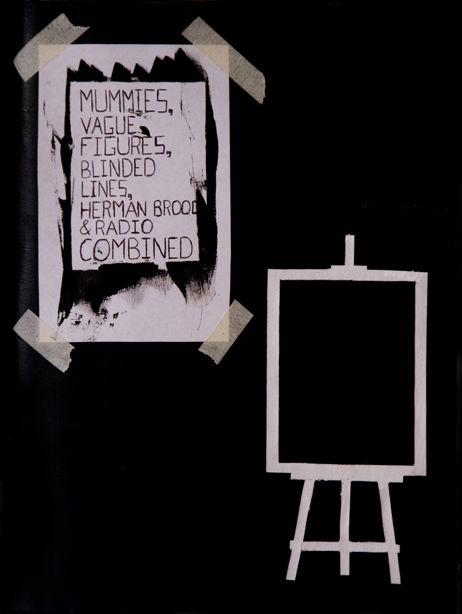 MUMMIES,
VAGUE
FIGURES,
BLINDED
LINES,
HERMAN BROOD
& RADIO
COMBINED